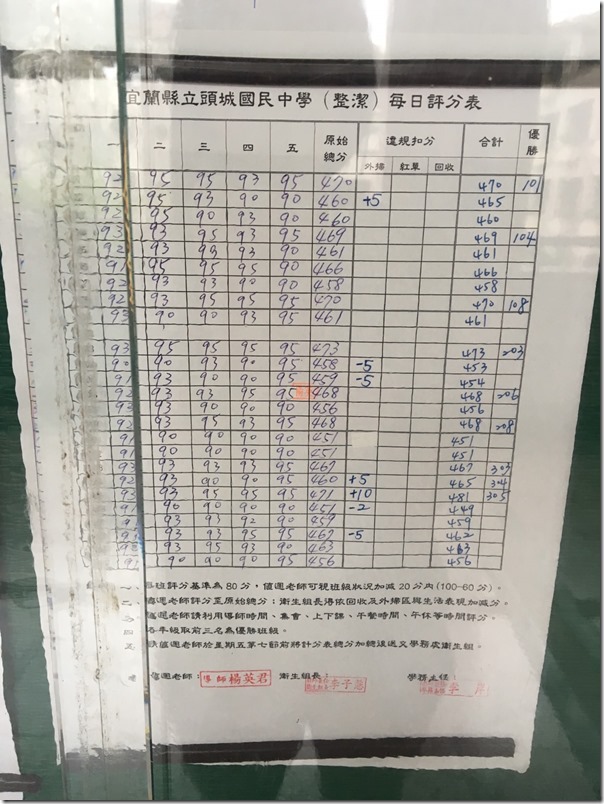 宜蘭縣立頭城國民中學（整潔）每日評分表
一 二 三 四 五 原始總分 違規扣分 合計 優勝
外掃 紅單 回收
92 95 95 93 95 470 470 101
92 95 93 90 90 460 +5 465
92 95 90 93 90 460 460
93 93 95 93 95 469 469 104
92 93 93 93 90 461 461
91 95 95 95 90 466 466
92 93 93 90 90 458 458
92 93 95 95 95 470 470 108
93 90 90 93 95 461 461
93 95 95 95 95 473 473 203
90 90 93 90 95 458 -5 453
91 93 90 90 95 459 -5 454
92 93 93 95 95 468 468 206
93 90 90 90 456 456
92 93 95 93 95 468 468 208
91 90 90 90 90 451 451
91 90 90 90 90 451 451
93 93 93 93 95 467 467 303
92 93 90 90 95 460 +5 465 304
93 95 95 95 471 +10 481 305
91 90 90 90 90 451 -2 449
91 93 93 92 90 459 459
93 93 95 95 467 -5 462
93 95 93 90 463 463
91 90 90 90 95 456 456
班評分基準為 80 分，值週老師可視班級狀況加減 20 分內(100-60 分)。
值週老師評分至原始總分；衛生組長得依回收及外掃區與生活表現加減分。
值週老師請利用導師時間、集會、上下課、午餐時間、午休等時間評分。
各年級取前三名為優勝班級。
值週老師於星期五第七節前將計分表總分加總後送交學務處衛生組。
值週老師： 導師 楊英君 衛生組長： 李子 學務主任：